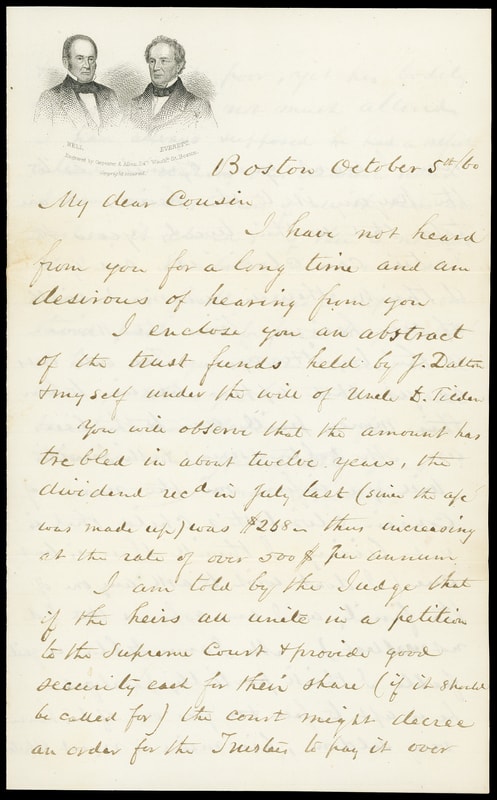 BELL EVERETT
Boston October 5th/60
My dear Cousin
I have not heard
from you for a long time and am
desirous of hearing from you
I enclose you an abstract
of the trust funds held by J. Dalton
& myself under the will of Uncle D. Tilden
You will observe that the amount has
trebled in about twelve years, the
dividend recd in July last (since the a/c
was made up) was $268 – thus increasing
at the rate of over 500 $ per annum
I am told by the Judge that
if the heirs all unite in a petition
to the Supreme Court & provide good
security each for their share (if it should
be called for) the court might decree
an order for the Trustees to pay it over